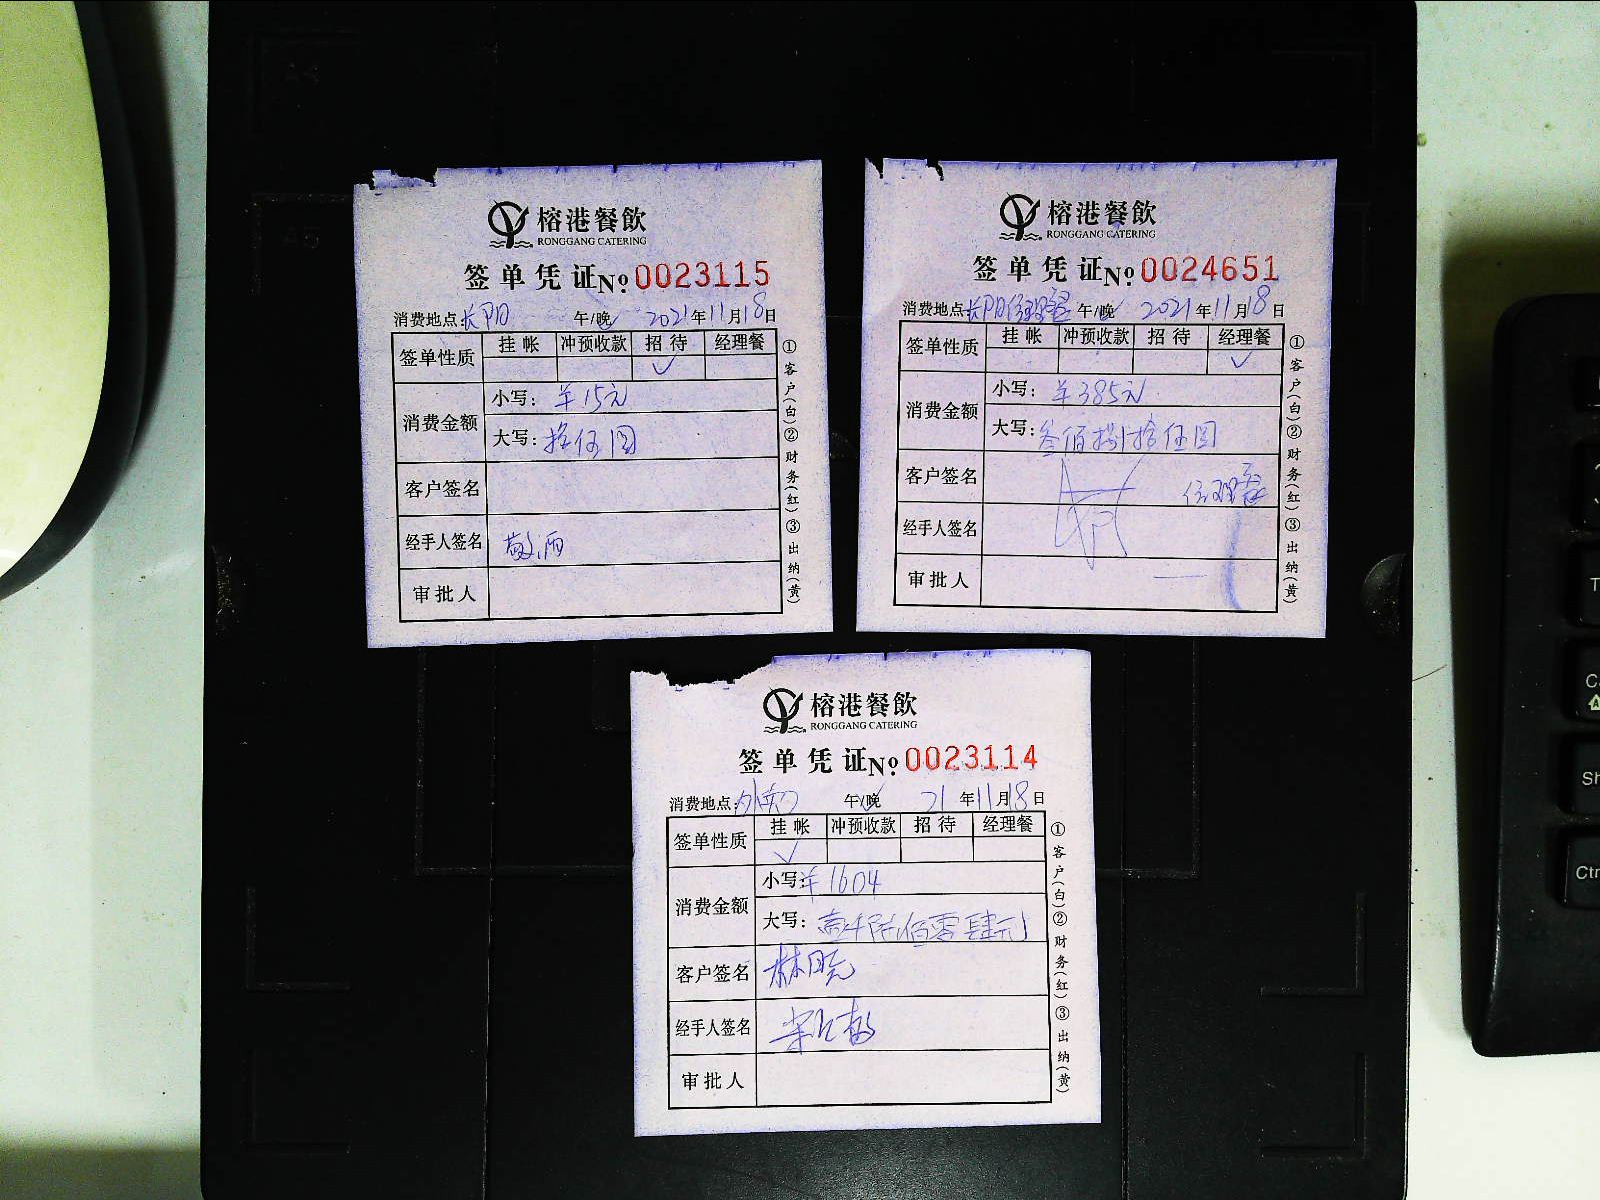 榕港餐飲
RONGGANG CATERING
签单凭证 No 0023115
消费地点: 长阳 午/晚 2021年11月18日
签单性质 挂帐 冲预收款 招待 经理餐
✓
消费金额
小写: ¥15元
大写: 拾伍圆
客户签名
经手人签名
审批人
①客户(白)②财务(红)③出纳(黄)
榕港餐飲
RONGGANG CATERING
签单凭证 No 0024651
消费地点: 长阳经理餐 午/晚 2021年11月18日
签单性质 挂帐 冲预收款 招待 经理餐
✓
消费金额
小写: ¥385元
大写: 叁佰捌拾伍圆
客户签名 经理餐
经手人签名
审批人
①客户(白)②财务(红)③出纳(黄)
榕港餐飲
RONGGANG CATERING
签单凭证 No 0023114
消费地点: 午/晚 21年11月18日
签单性质 挂帐 冲预收款 招待 经理餐
✓
消费金额
小写: ¥1604
大写: 壹仟陆佰零肆元
客户签名
经手人签名
审批人
①客户(白)②财务(红)③出纳(黄)
A4
A5
Ctr